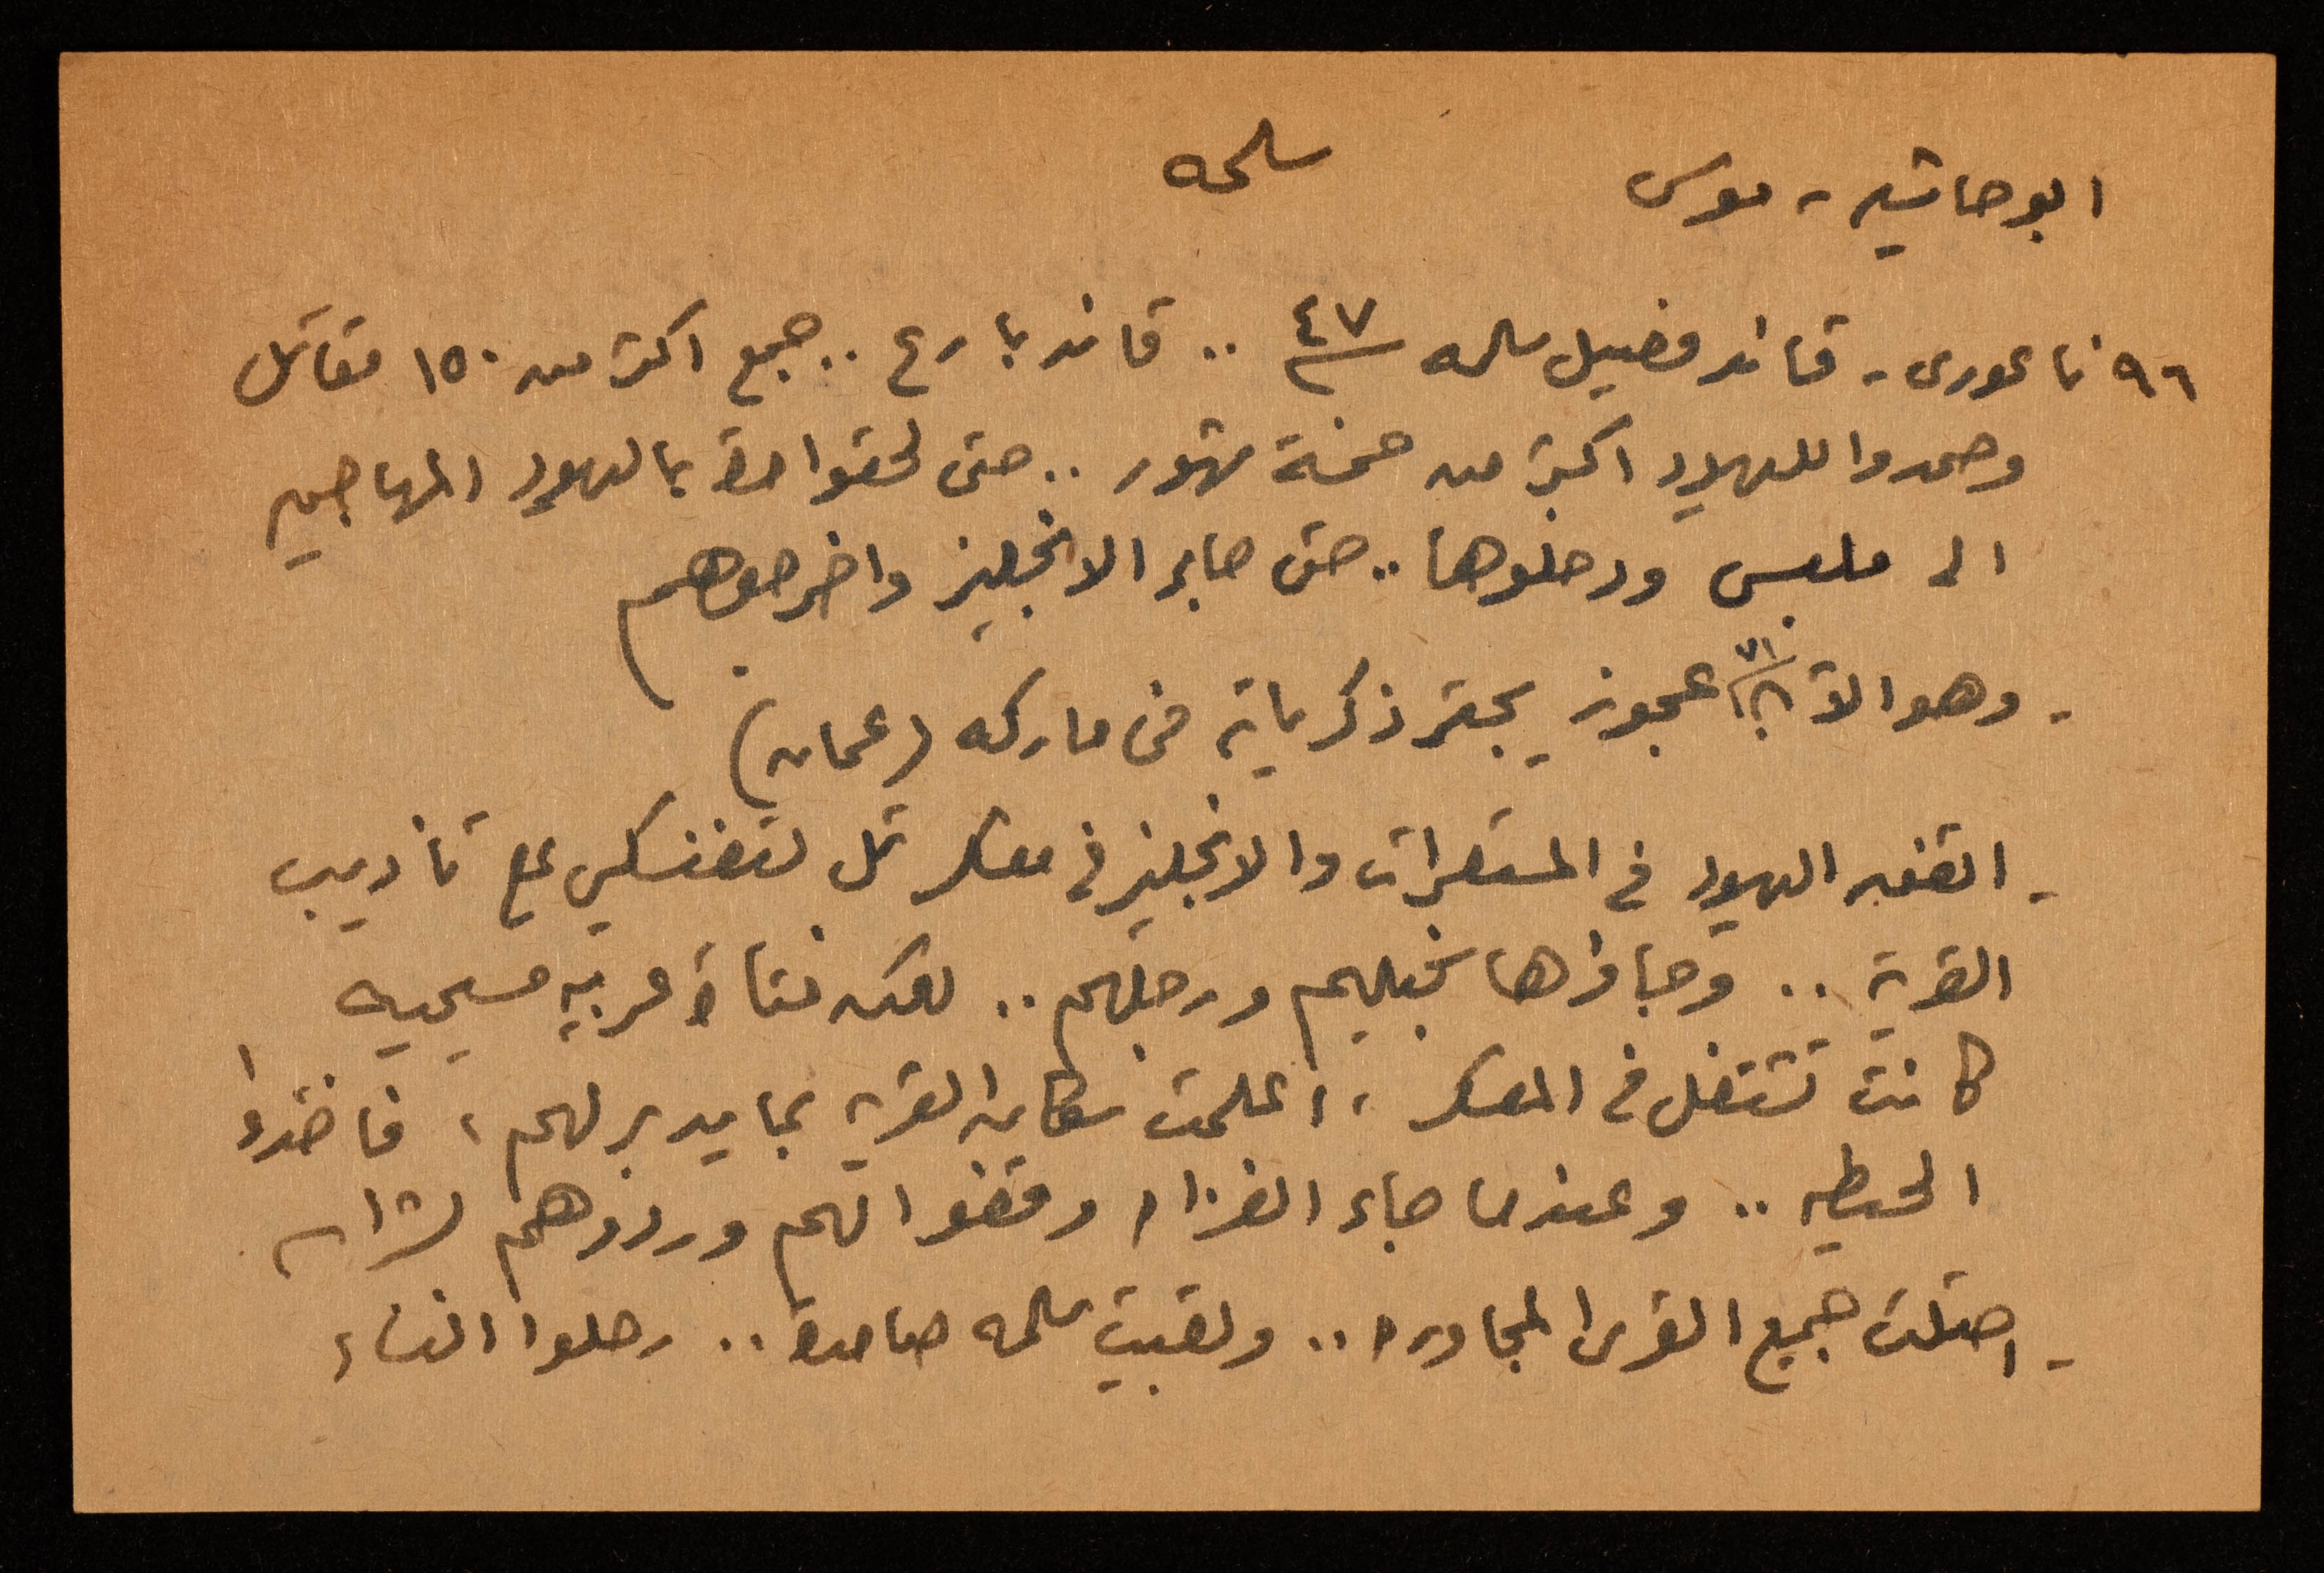 سلمه
ابو حاشيه - موسى
٩٦ ناعورى - قائد فصيل سلمه ٤٧ .. قائد بارع .. جمع اكثر من ١٥٠ مقاتل
وصمدوا لليهود اكثر من خمسة شهور .. حتى لحقوا مرة باليهود المهاجمين
الى ملبس ودخلوها .. حتى جاء الانجليز واخرجوهم
- وهو الآن ٧١ عجوز يجتر ذكرياته فى ماركه (عمان)
- اتفق اليهود في المستعمرات والانجليز في معسكر تل لتفنسكي على تأديب
القرية .. وجاؤها بخيلهم ورجلهم .. لكن فتاة عربيه مسيحيه
كانت تشتغل في المعسكر ، اعلمت سكان القريه بما يدبر لهم ، فاخذوا
الحيطه .. وعندما جاء الغزاه وقفوا لهم وردوهم
- احتلت جميع القرى المجاوره .. وبقيت سلمه صامدة .. رحلوا النساء